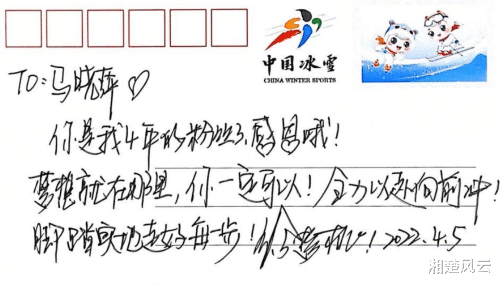 中国冰雪
CHINA WINTER SPORTS
TO:马晓萍♡
你是我4年的粉丝了,感恩哦!
梦想就在那里,你一定可以!全力以赴向前冲!
脚踏实地走好每一步!2022.4.5
湘楚风云